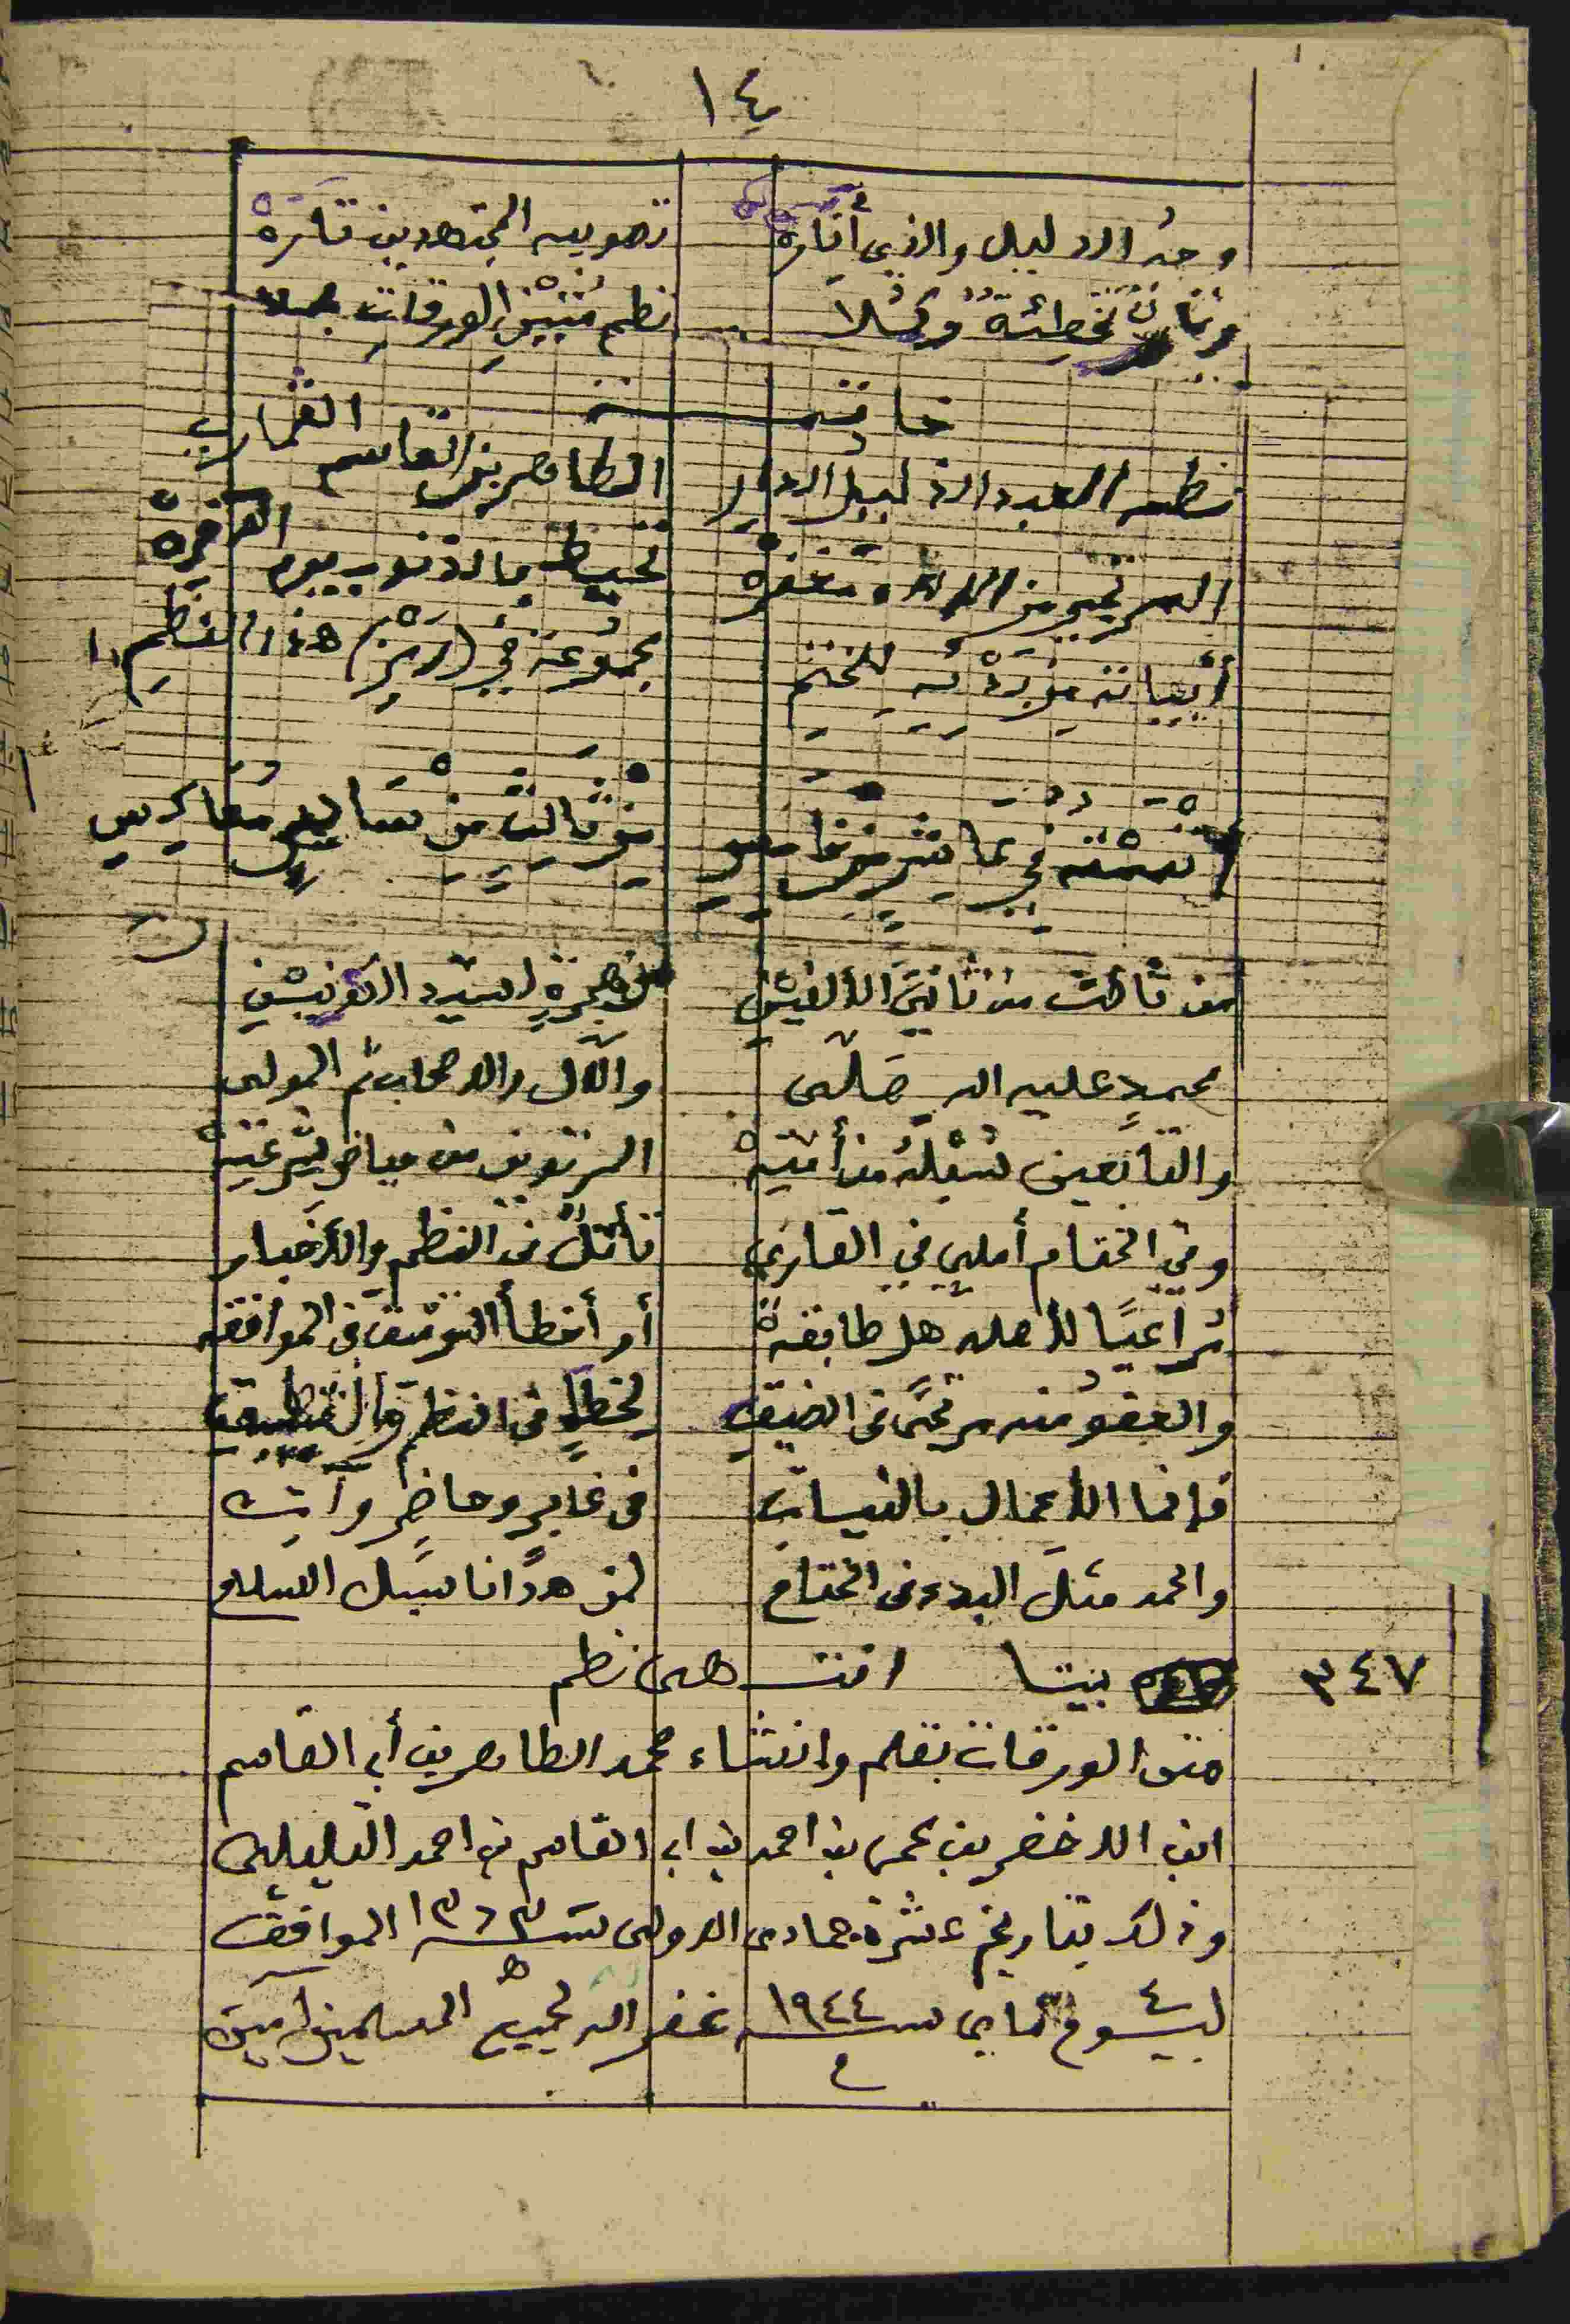 ١٤
وجه الدليل والذي أناره تصويب المجتهدين تاره
وتارة تخطئة وكملا نظم متين الورقات بجلا
خاتمة
نظمه العبد الذليل الدار الطاهر بن القاسم القماري
المرتجي من الإله مغفره تحيط بالذنوب يوم الآخرة
أبياته من بدئه للختم مجموعة في (رمز) هذا النظم
أتممته في عاشر من خامس من ثالث من سابع معاكس
من ثالث من ثاني الألفين من هجرة السيد الكونين
محمد عليه الله صلى والآل والاصحاب ثم المولى
والتابعين سبله من أمته المرتوين من مياض شرعته
وفي الختام أملي في القاري تأمل في النظم والأخبار
مراعيًا لأصله هل طابقه أو أخطأ التوفيق في الموافقه
والعفو منه مرتجى في الضيق لخطإ في النظم والتطبيق
فإنما الأعمال بالنيات في غابر وحاضر وآت
والحمد مثل البدء في الختام لمن هدانا سبل السلام
٣٤٧ بيتا انتهى نظم
متن الورقات بقلم وانشاء محمد الطاهر بن أبي القاسم
ابن الاخضر بن عمر بن احمد بن ابي القاسم بن احمد التليلي
وذلك بتاريخ عشرة جمادى الاولى سنة ١٣٦٣ الموافق
لـ ٤ ماي سنة ١٩٤٤ غفر الله لجميع المسلمين آمين